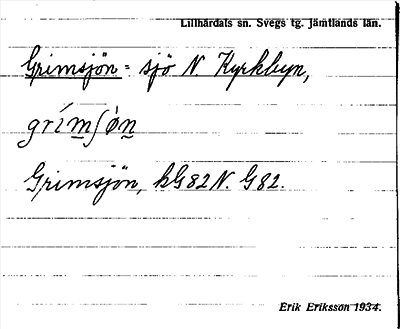 Lillhärdals sn. Svegs tg. Jämtlands län.
Grimsjön = sjö N. Kyrkbyn,
grímʃòn
Grimsjön, hG82N. G82.
Erik Eriksson 1934.